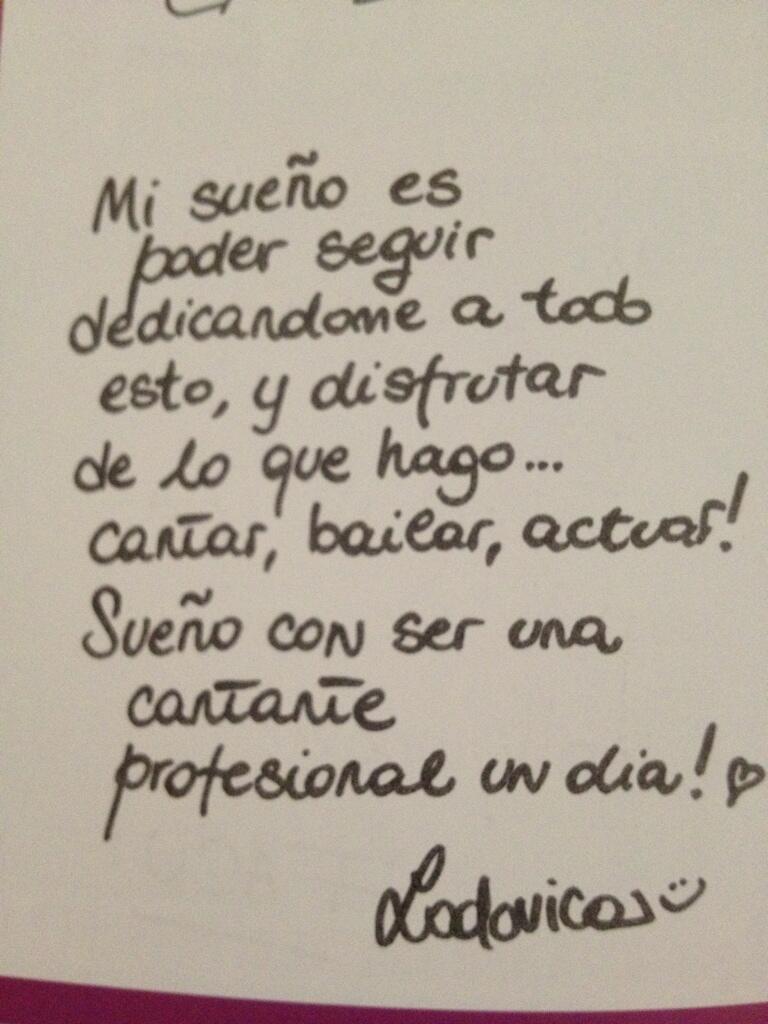 Mi sueño es
poder seguir
dedicandome a todo
esto, y disfrutar
de lo que hago...
cantar, bailar, actuar!
Sueño con ser una
cantante
profesional un dia! ♡
Lodovica :)